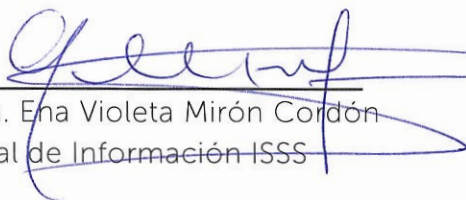 . Ena Violeta Mirón Cordón
al de Información ISSS